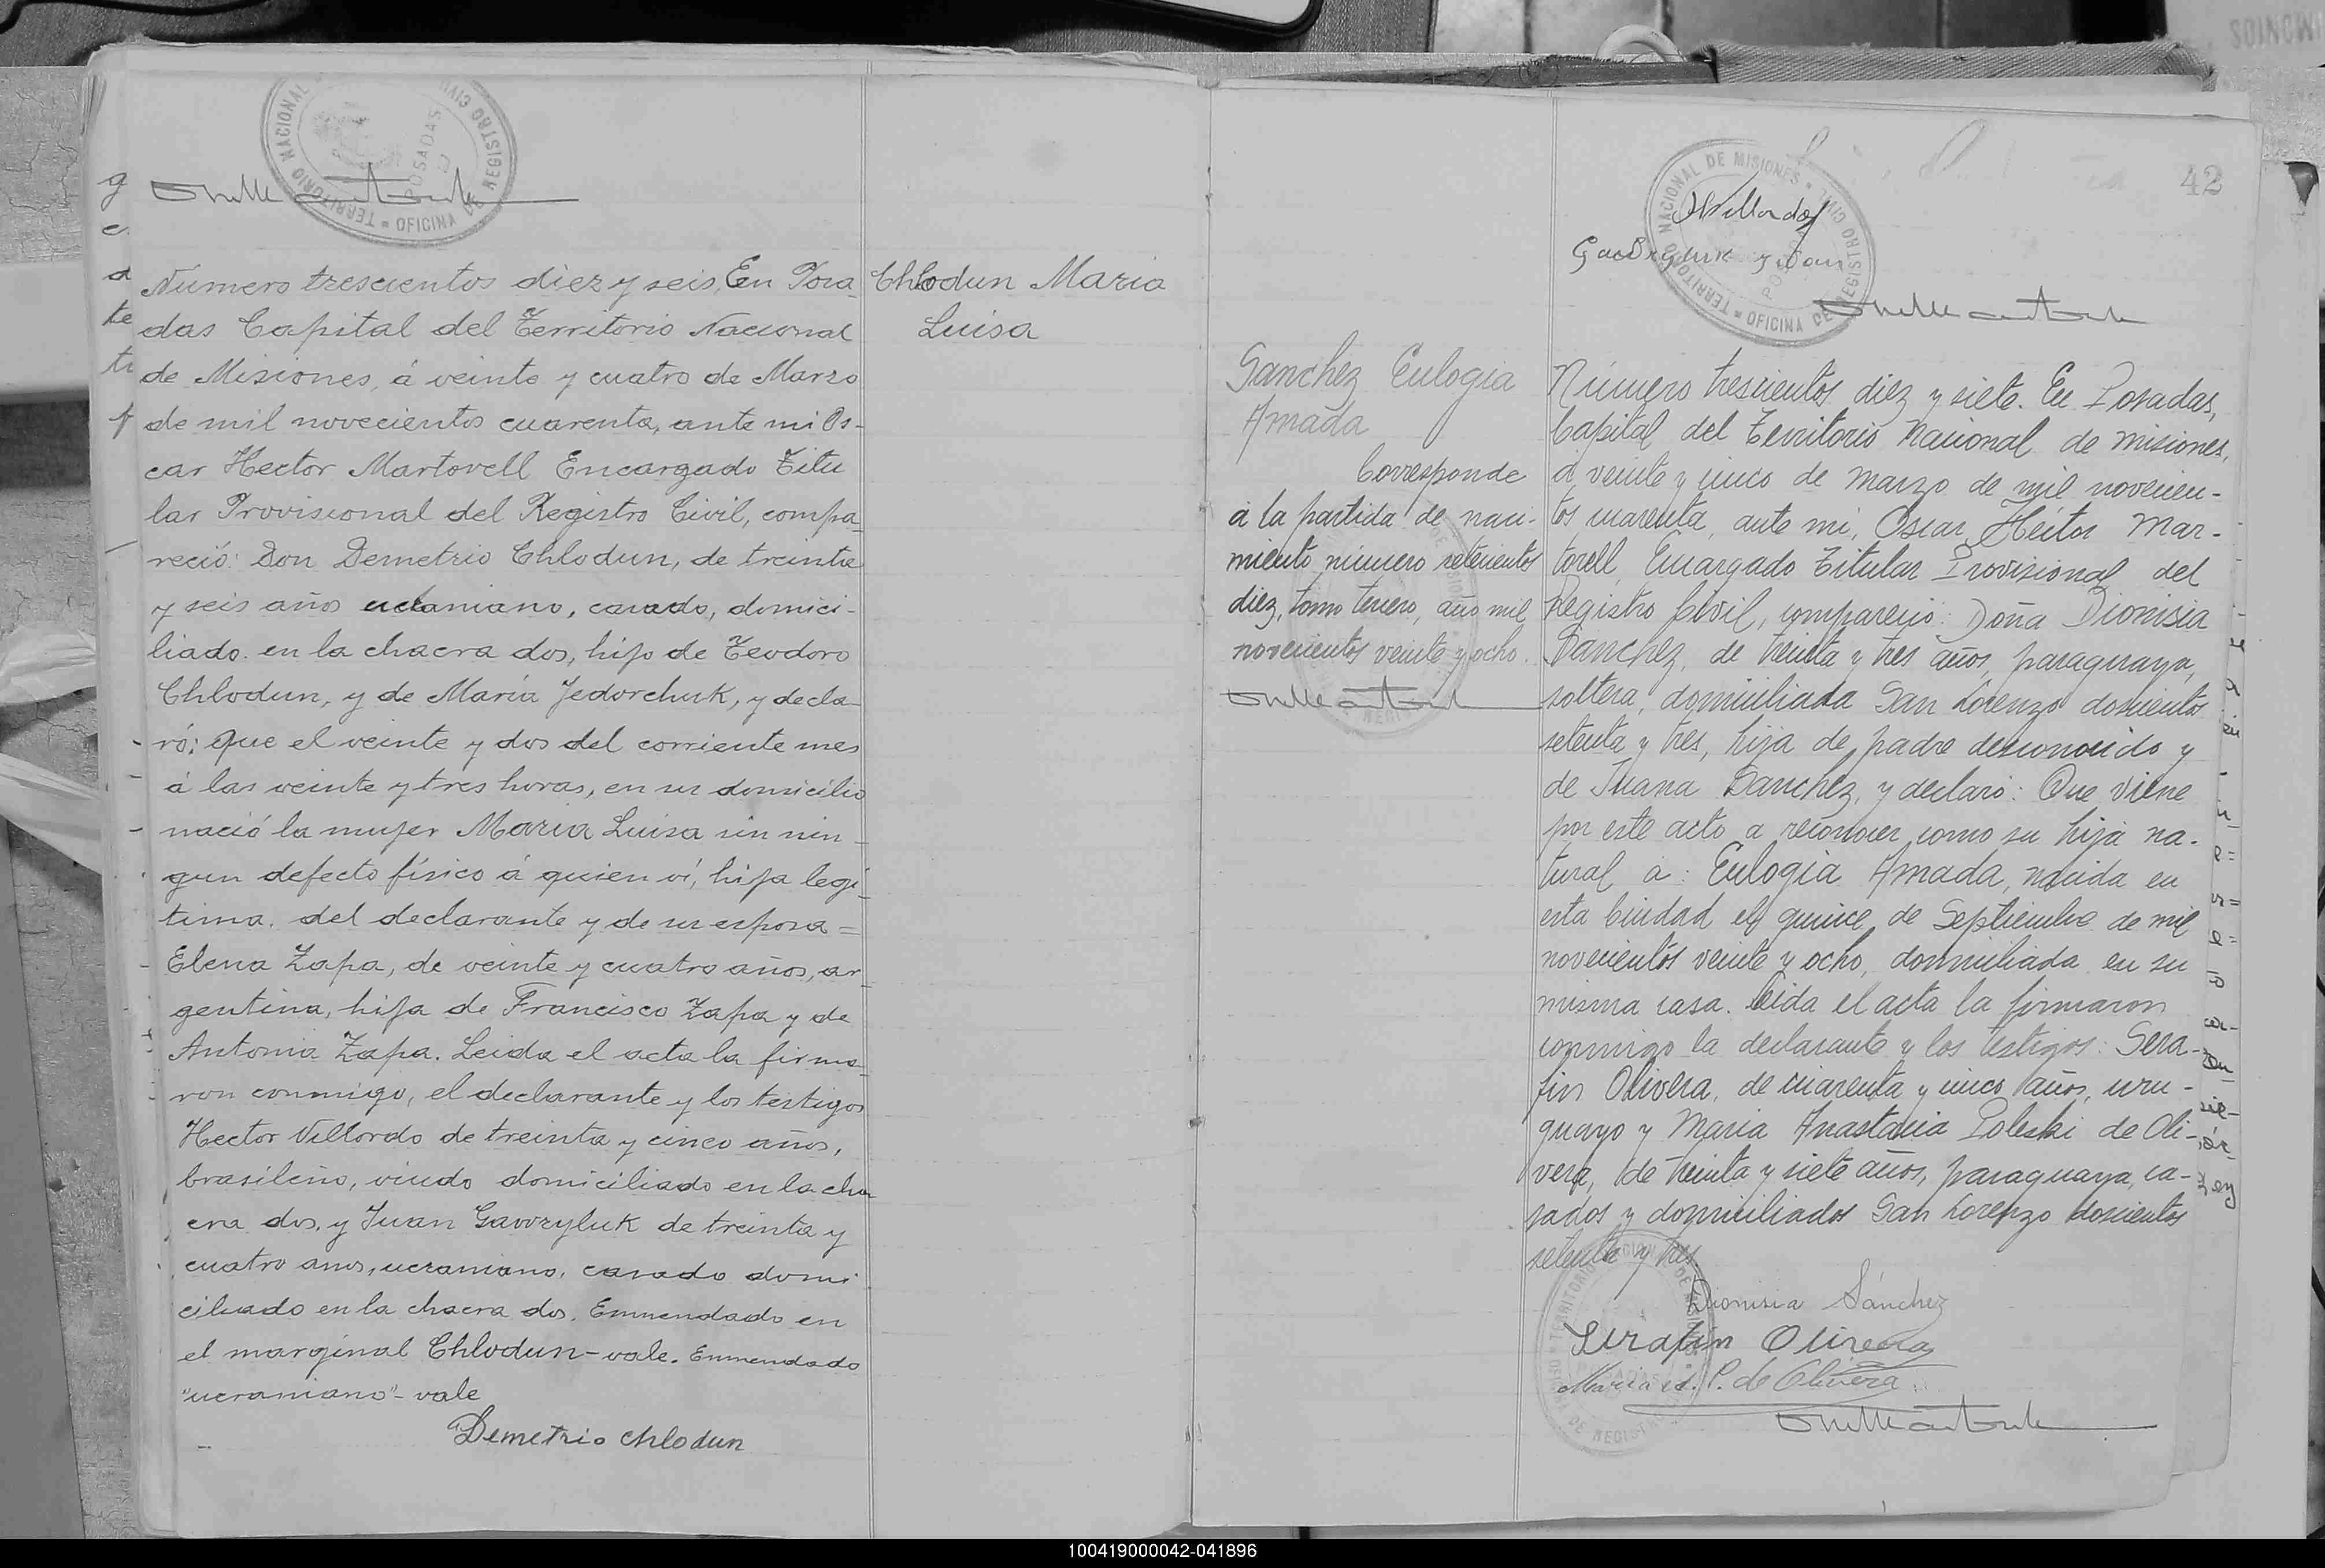 TERRITORIO NACIONAL
POSADAS
OFICINA DE REGISTRO CIVIL
Chlodun Maria
Luisa
Numero trescientos diez y seis, En Posa-
das Capital del Territorio Nacional
de Misiones, á veinte y cuatro de Marzo
de mil novecientos cuarenta, ante mi Os-
car Hector Martorell Encargado Titu
lar Provisional del Registro Civil, compa-
reció: Don Demetrio Chlodun, de treinta
y seis años ucraniano, casado, domici-
liado en la chacra dos, hijo de Teodoro
Chlodun, y de María Jedorchuk, y decla-
ró: que el veinte y dos del corriente mes
á las veinte y tres horas, en su domicilio
nació la mujer Maria Luisa sin nin-
gun defecto físico á quien ví, hija legí-
tima. del declarante y de su esposa =
Elena Zapa, de veinte y cuatro años, ar-
gentina, hija de Francisco Zapa y de
Antonia Zapa. Leida el acta la firma-
ron conmigo, el declarante y los testigos
Hector Villordo de treinta y cinco años,
brasileño, viudo domiciliado en la cha
cra dos, y Juan Gavryluk de treinta y
cuatro anos, ucraniano, casado domi
ciliado en la chacra dos. Enmendado en
el marginal Chlodun-vale. Enmendado
"ucraniano"- vale
Demetrio Chlodun
42
TERRITORIO NACIONAL DE MISIONES
OFICINA DE REGISTRO CIVIL
Sanchez Eulogia
Amada
Corresponde
á la partida de naci-
miento número setecientos
diez, tomo tercero, año mil
novecientos veinte y ocho.
Número trescientos diez y siete. En Posadas,
Capital del Territorio Nacional de Misiones,
á veinte y cinco de marzo de mil novecien-
tos cuarenta, ante mi, Oscar Héctor Mar-
torell, Encargado Titular Provisional del
Registro Civil, compareció: Doña Dionisia
Sanchez, de treinta y tres años, paraguaya,
soltera, domiciliada San Lorenzo doscientos
setenta y tres, hija de padre desconocido y
de Juana Sanchez, y declaró: Que viene
por este acto a reconocer como su hija na-
tural a: Eulogia Amada, nacida en
esta Ciudad el quince de Septiembre de mil
novecientos veinte y ocho, domiciliada en su
misma casa. Leida el acta la firmaron
conmigo la declarante y los testigos: Sera-
fin Olivera, de cuarenta y cinco años, uru-
guayo y Maria Anastacia Poleski de Oli-
vera, de treinta y siete años, paraguaya, ca-
sados y domiciliados San Lorenzo doscientos
setenta y tres.
Dionisia Sánchez
Serafin Olivera
Maria A. P. de Olivera
100419000042-041896